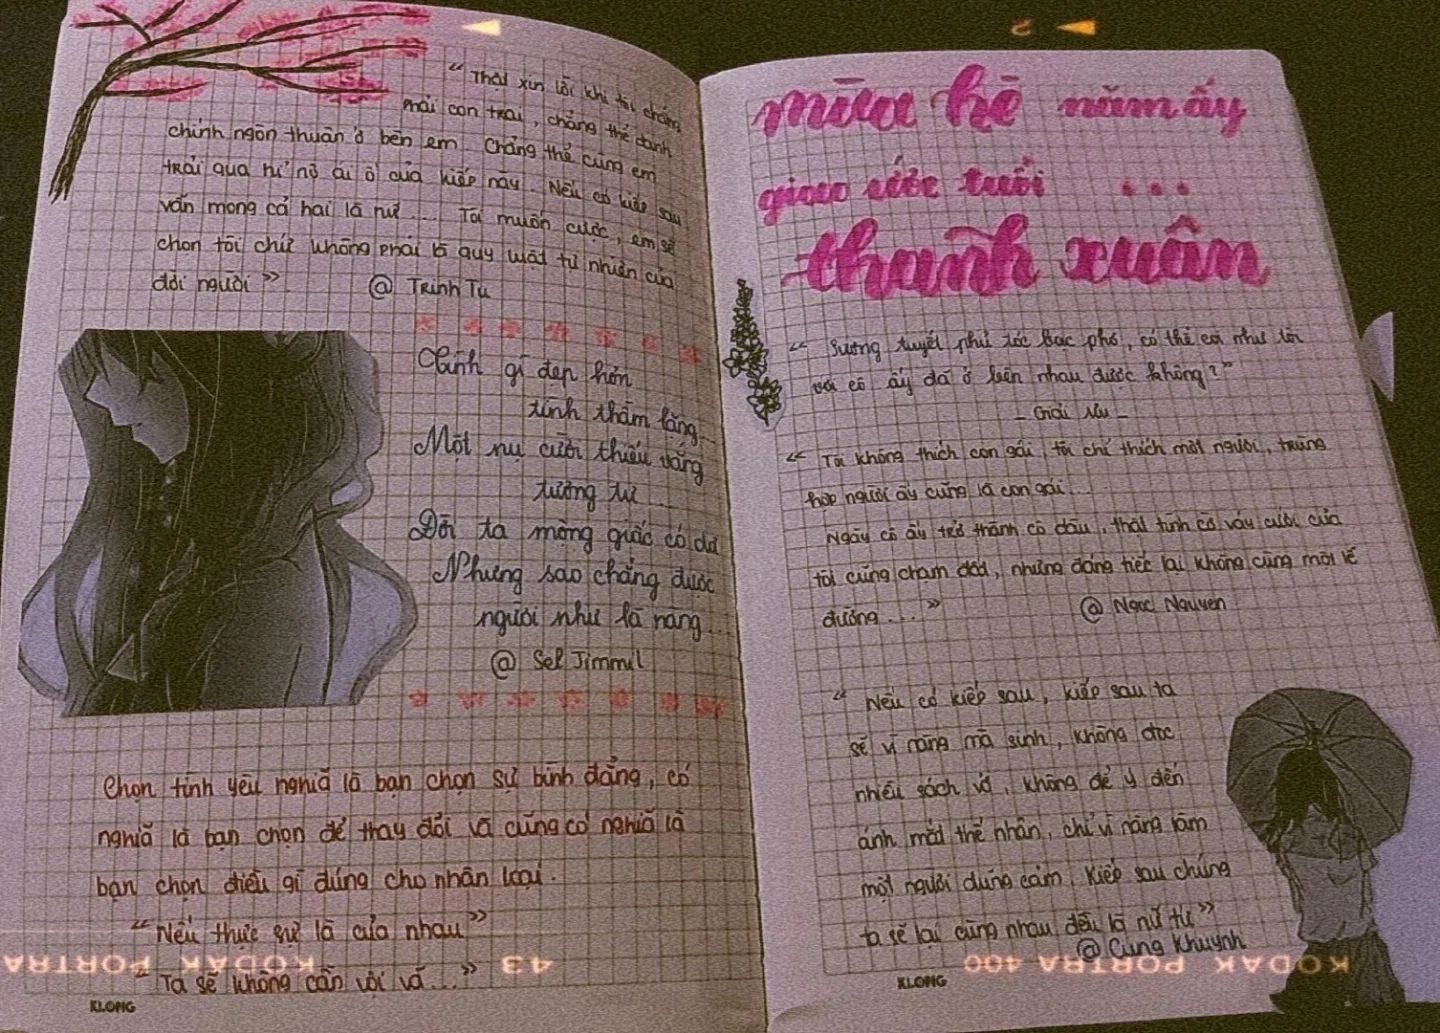 “ Thật xin lỗi khi tôi chẳng
phải con trai, chẳng thể danh
chính ngôn thuận ở bên em. Chẳng thể cùng em
trải qua hỉ nộ ái ố của kiếp này. Nếu có kiếp sau
vẫn mong cả hai là nữ .... Tôi muốn cược, em sẽ
chọn tôi chứ không phải là quy luật tự nhiên của
đời người ”
@ Trinh Tu
Tình gì đẹp hơn
tình thầm lặng...
Một nụ cười thiếu vắng
tương tư ....
Đời ta mộng giấc có dư
Nhưng sao chẳng được
người như là nàng...
@ Sel Jimmil
Chọn tình yêu nghĩa là bạn chọn sự bình đẳng, có
nghĩa là bạn chọn để thay đổi và cũng có nghĩa là
bạn chọn điều gì đúng cho nhân loại.
“ Nếu thực sự là của nhau ”
“ Ta sẽ không cần vội vã.... ”
KODAK PORTRA
43
KLONG
2
mùa hè năm ấy
giao ước tuổi ...
thanh xuân
“ Sương tuyết phủ tóc bạc phơ, có thể coi như tôi
với cô ấy đã ở bên nhau được không? ”
“ Tôi không thích con gái, tôi chỉ thích một người, trùng
hợp người ấy cũng là con gái....
Ngày cô ấy trở thành cô dâu, thật tình cờ váy cưới của
tôi cũng chạm đất, nhưng đáng tiếc lại không cùng một lễ
đường .... ”
@ Ngoc Nguyen
“ Nếu có kiếp sau, kiếp sau ta
sẽ vì nàng mà sinh, không đọc
nhiều sách vở, không để ý đến
ánh mắt thế nhân, chỉ vì nàng làm
một người dũng cảm. Kiếp sau chúng
ta sẽ lại cùng nhau đều là nữ tử ”
@ Cung Khuynh
KODAK PORTRA 400
KLONG